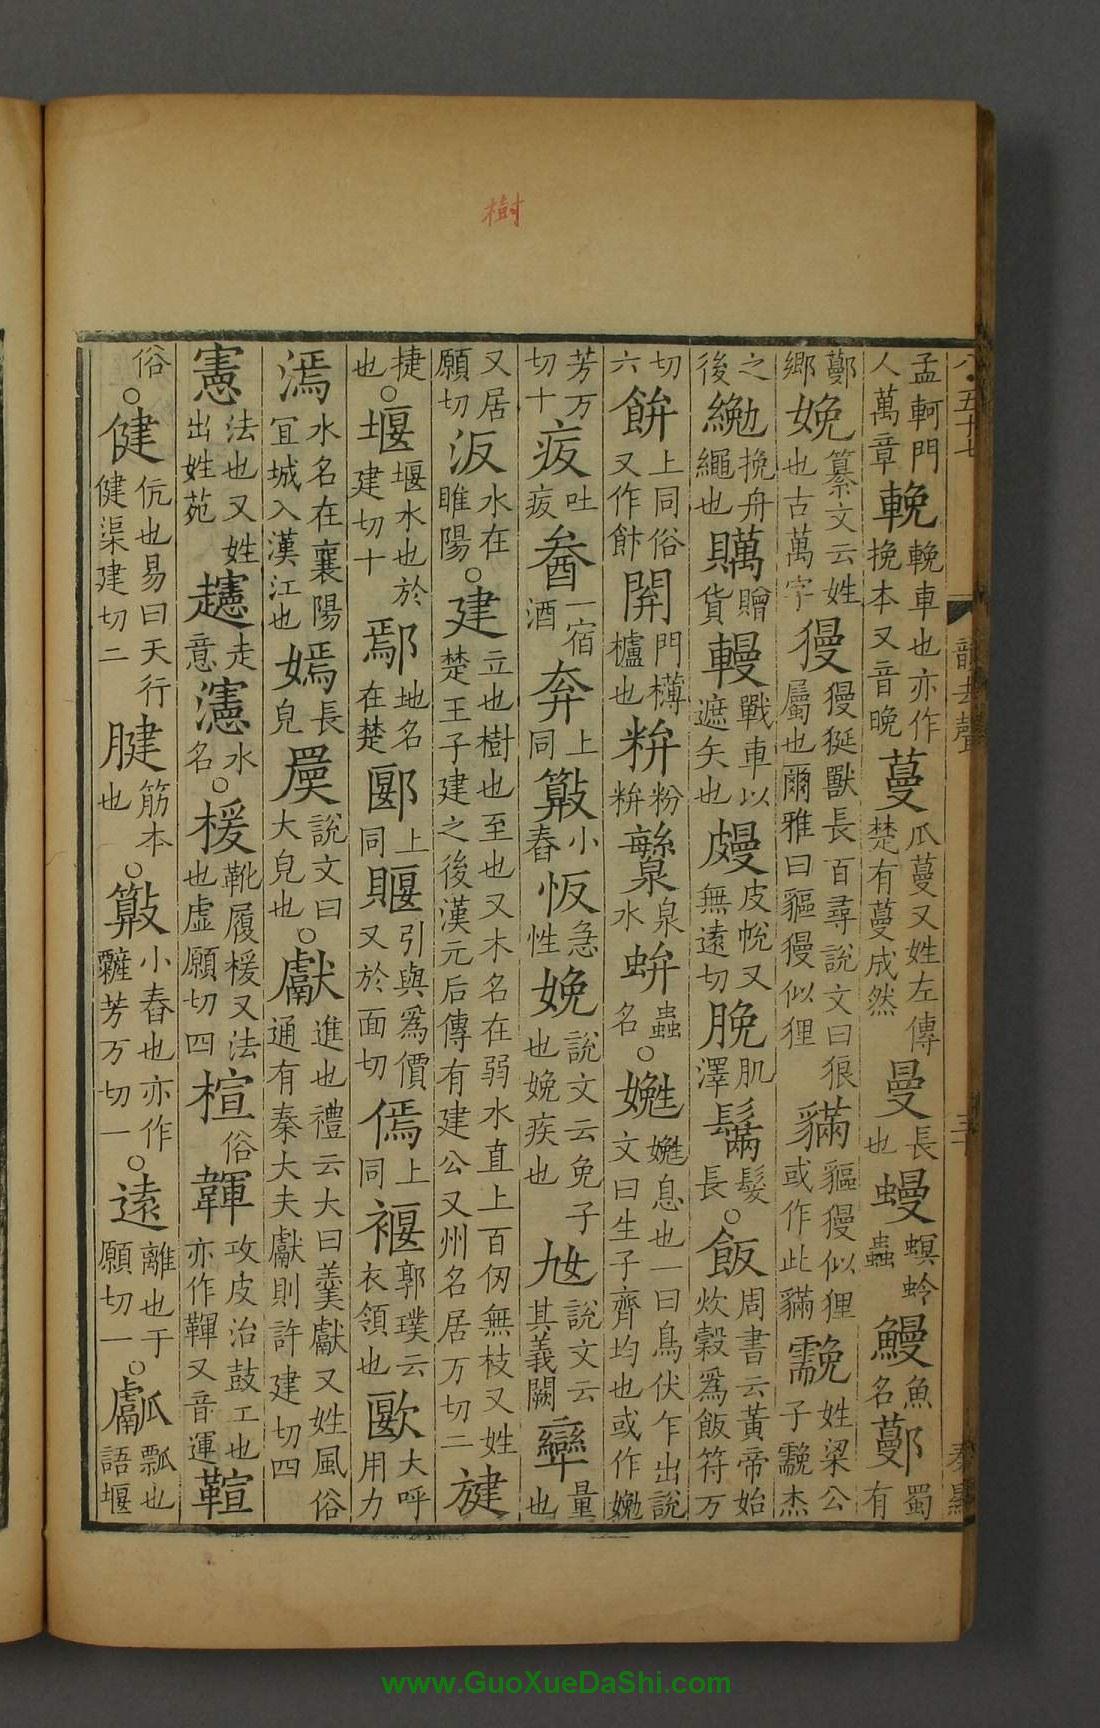 樹
孟軻門人萬章輓輓車也亦作挽本又音晚蔓瓜蔓又姓左傳楚有蔓成然曼長也蟃螟蛉蟲鰻魚名鄤蜀有
鄤鄉娩纂文云姓也古萬字獌獌狿獸長百尋說文曰狼屬也爾雅曰貙獌似狸䝡貙獌似狸或作此䝡䨲姓梁公子䨲杰
之後䋦挽舟繩也贎贈貨䡬戰車以遮矢也㿸皮帨又無遠切脕肌澤鬗髮長○飯周書云黃帝始炊穀爲飯符万
切六餅上同俗又作飰開門欂櫨也粉粉𤁉泉水蛢蟲名○㝃㝃息也一曰鳥伏乍出說文曰生子齊均也或作㛯
芳万切十疲吐疲畚一宿酒奔上同䉛小舂恆急性娩說文云兔子也娩疾也奿說文云其義闕㪻量也
又居願切汳水在睢陽○建立也樹也至也又木名在弱水直上百仞無枝又姓楚王子建之後漢元后傳有建公又州名居万切二㨩
捷也○堰堰水也於建切十鄢地名在楚郾上同䞁引與爲價又於面切傿上同褗郭璞云衣領也㰽大呼用力
漹水名在襄陽宜城入漢江也嫣長皃㒽說文曰大皃也○獻進也禮云大曰羹獻又姓風俗通有秦大夫獻則許建切四
憲法也又姓出姓苑趭走意瀗水名○楥靴履楥又法也虛願切四楦俗韗攻皮治鼓工也亦作鞸又音運鞙
俗○健伉也易曰天行健渠建切二腱筋本也○䉛小舂也亦作䊳芳万切一○遠離也于願切一○甗瓢也語堰
韻去聲
www.GuoXueDaShi.com